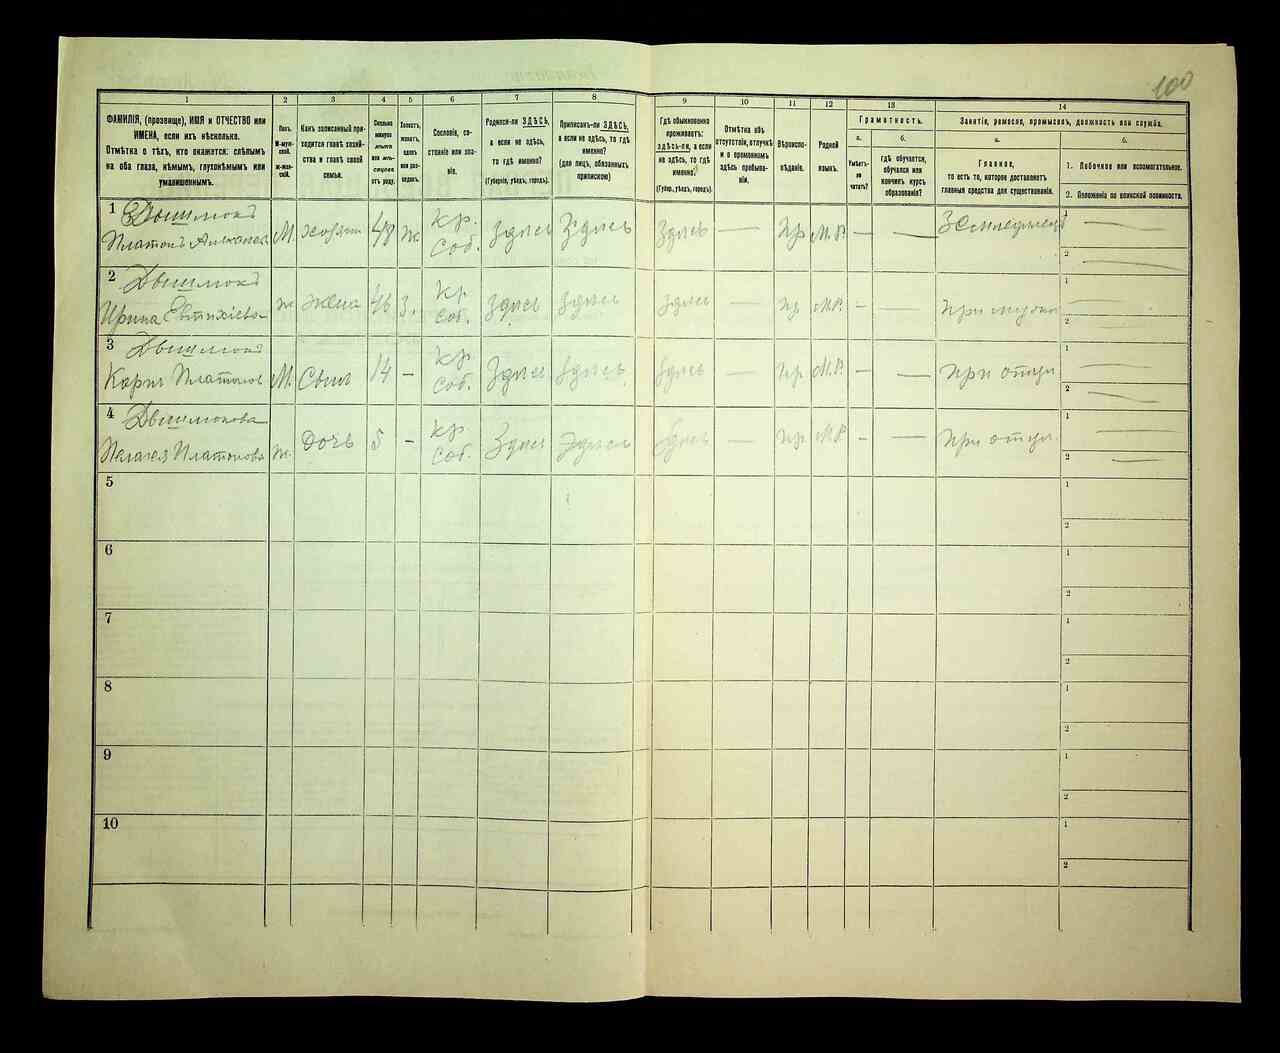 100
1
2
3
4
5
6
7
8
9
10
11
12
13
14
ФАМИЛІЯ, (прозвище), ИМЯ и ОТЧЕСТВО или
ИМЕНА, если ихъ нѣсколько.
Отмѣтка о тѣхъ, кто окажется: слѣпымъ
на оба глаза, нѣмымъ, глухонѣмымъ или
умалишеннымъ.
Полъ.
М-муж-
ской.
ж-жен-
скій.
Какъ записанный при-
ходится главѣ хозяй-
ства и главѣ своей
семьи.
Сколько
минуло
лѣтъ
или мѣ-
сяцевъ
отъ роду.
Холостъ,
женатъ,
вдовъ
или раз-
веденъ.
Сословіе, со-
стояніе или зва-
ніе.
Родился-ли ЗДѢСЬ,
а если не здѣсь,
то гдѣ именно?
(Губернія, уѣздъ, городъ).
Приписанъ-ли ЗДѢСЬ,
а если не здѣсь, то гдѣ
именно?
(для лицъ, обязанныхъ
припискою)
Гдѣ обыкновенно
проживаетъ:
ЗДѢСЬ-ли, а если
не здѣсь, то гдѣ
именно?
(Губер., уѣздъ, городъ).
Отмѣтка объ
отсутствіи, отлучкѣ
и о временномъ
здѣсь пребыва-
ніи.
Вѣроиспо-
вѣданіе.
Родной
языкъ.
Грамотность.
а.
б.
Умѣетъ-
ли
читать?
гдѣ обучается,
обучался или
кончилъ курсъ
образованія?
Занятіе, ремесло, промыселъ, должность или служба.
а.
б.
Главное,
то есть то, которое доставляетъ
главныя средства для существованія.
1. Побочное или вспомогательное.
2. Положеніе по воинской повинности.
1
Платонъ
М. 48 ж Кр. Соб. Здѣсь Здѣсь Здѣсь — Пр М.Р. — —
1 —
2 —
2
Ирина Евтихіева
ж жена 46 З. Кр Соб. Здѣсь Здѣсь Здѣсь — Пр М.Р. — —
1 —
2 —
3
Карпъ Платоновъ
М. Сынъ 14 — Кр Соб. Здѣсь Здѣсь Здѣсь — Пр М.Р. — — При отцѣ
1 —
2 —
4
Пелагея Платонова
ж. Дочь 5 — Кр Соб. Здѣсь Здѣсь Здѣсь — Пр М.Р. — — При отцѣ.
1 —
2 —
5
1
2
6
1
2
7
1
2
8
1
2
9
1
2
10
1
2